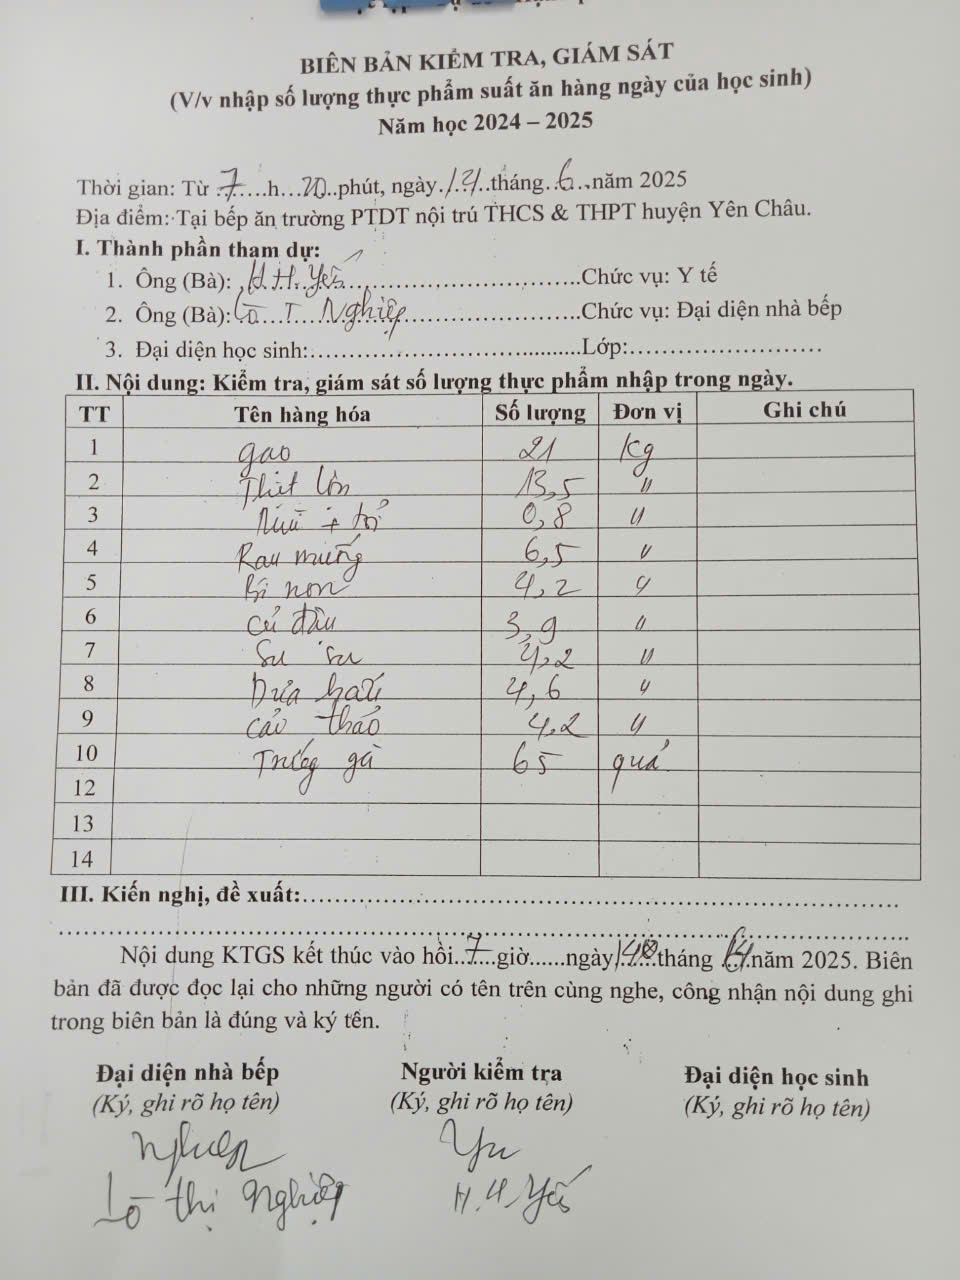 BIÊN BẢN KIỂM TRA, GIÁM SÁT
(V/v nhập số lượng thực phẩm suất ăn hàng ngày của học sinh)
Năm học 2024 – 2025
Thời gian: Từ 7 h 20 phút, ngày 14 tháng 6 năm 2025
Địa điểm: Tại bếp ăn trường PTDT nội trú THCS & THPT huyện Yên Châu.
I. Thành phần tham dự:
1. Ông (Bà): H.H. Yến Chức vụ: Y tế
2. Ông (Bà): Lò T Nghiệp Chức vụ: Đại diện nhà bếp
3. Đại diện học sinh: Lớp:
II. Nội dung: Kiểm tra, giám sát số lượng thực phẩm nhập trong ngày.
TT Tên hàng hóa Số lượng Đơn vị Ghi chú
1 gạo 21 Kg
2 Thịt lợn 13,5 "
3 + tỏi 0,8 "
4 Rau muống 6,5 "
5 Bí non 4,2 "
6 Củ đậu 3,9 "
7 Su su 4,2 "
8 Dưa hấu 4,6 "
9 Cải thảo 4,2 "
10 Trứng gà 65 quả
12
13
14
III. Kiến nghị, đề xuất:
Nội dung KTGS kết thúc vào hồi 7 giờ ngày 14 tháng năm 2025. Biên
bản đã được đọc lại cho những người có tên trên cùng nghe, công nhận nội dung ghi
trong biên bản là đúng và ký tên.
Đại diện nhà bếp Người kiểm tra Đại diện học sinh
(Ký, ghi rõ họ tên) (Ký, ghi rõ họ tên) (Ký, ghi rõ họ tên)
Nghiệp
Lò Thị Nghiệp H.H. Yến